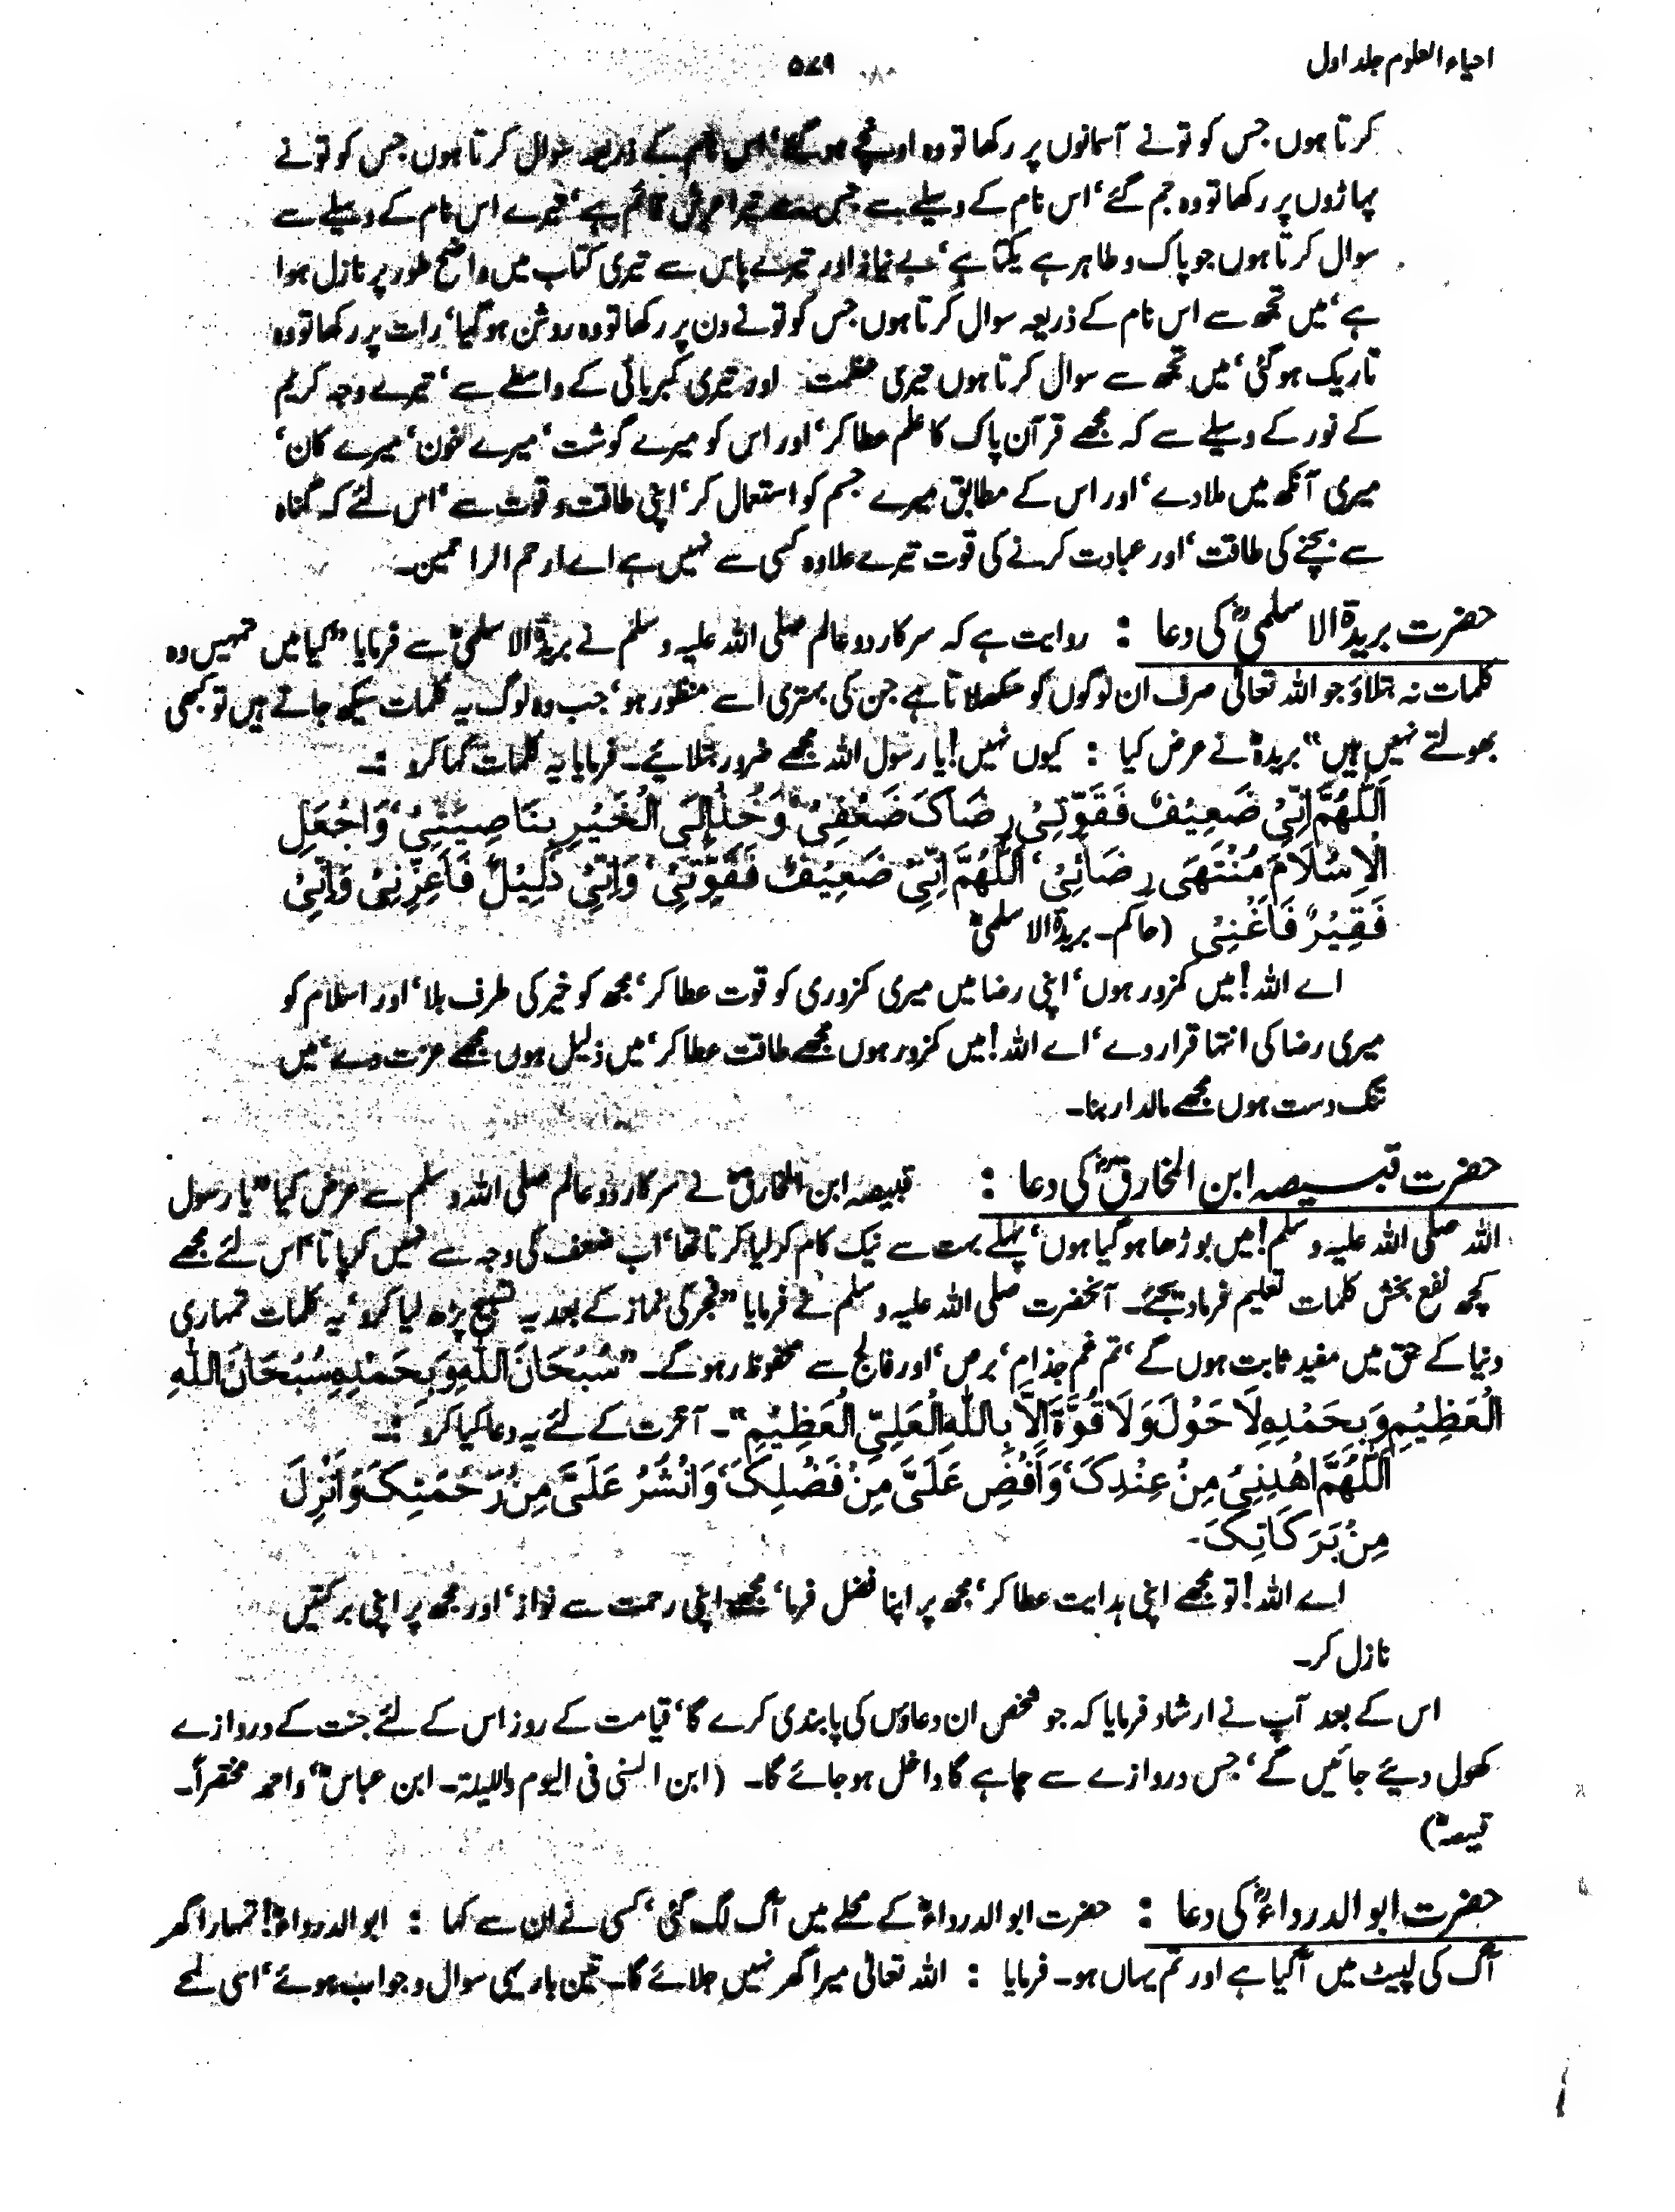 احیاء العلوم جلد اول
۵۷۹
کرتا ہوں جس کو تو نے آسمانوں پر رکھا تو وہ اونچے ہوگئے‘ اس نام کے ذریعہ سوال کرتا ہوں جس کو تو نے
پہاڑوں پر رکھا تو وہ جم گئے‘ اس نام کے وسیلے سے جس سے تیرا عرش قائم ہے‘ تیرے اس نام کے وسیلے سے
سوال کرتا ہوں جو پاک و طاہر ہے یکتا ہے‘ بے نیاز اور تیرے پاس سے تیری کتاب میں واضح طور پر نازل ہوا
ہے‘ میں تجھ سے اس نام کے ذریعہ سوال کرتا ہوں جس کو تو نے دن پر رکھا تو وہ روشن ہوگیا‘ رات پر رکھا تو وہ
تاریک ہوگئی‘ میں تجھ سے سوال کرتا ہوں تیری عظمت اور تیری کبریائی کے واسطے سے‘ تیرے وجہ کریم
کے نور کے وسیلے سے کہ مجھے قرآن پاک کا علم عطا کر‘ اور اس کو میرے گوشت‘ میرے خون‘ میرے کان‘
میری آنکھ میں ملا دے‘ اور اس کے مطابق میرے جسم کو استعمال کر‘ اپنی طاقت و قوت سے‘ اس لئے کہ گناہ
سے بچنے کی طاقت‘ اور عبادت کرنے کی قوت تیرے علاوہ کسی سے نہیں ہے اے ارحم الراحمین۔
حضرت بریدۃ الاسلمیؓ کی دعا : روایت ہے کہ سرکار دو عالم صلی اللہ علیہ وسلم نے بریدۃ الاسلمیؓ سے فرمایا ”کیا میں تمہیں وہ
کلمات نہ بتلاؤ جو اللہ تعالیٰ صرف ان لوگوں کو سکھلاتا ہے جن کی بہتری اسے منظور ہو‘ جب وہ لوگ یہ کلمات سیکھ جاتے ہیں تو کبھی
بھولتے نہیں ہیں“ بریدہؓ نے عرض کیا : کیوں نہیں! یا رسول اللہ مجھے ضرور بتلائیے۔ فرمایا یہ کلمات کہا کرو :۔
اَللّٰهُمَّ اِنِّیْ ضَعِیْفٌ فَقَوِّنِیْ رِضَاکَ ضَعْفِیْ وَخُذْ اِلَی الْخَیْرِ بِنَاصِیَتِیْ‘ وَاجْعَلِ
الْاِسْلَامَ مُنْتَهَی رِضَائِیْ‘ اَللّٰهُمَّ اِنِّیْ ضَعِیْفٌ فَقَوِّنِیْ‘ وَاِنِّیْ ذَلِیْلٌ فَاَعِزَّنِیْ وَاِنِّیْ
فَقِیْرٌ فَاَغْنِنِیْ (حاکم۔ بریدۃ الاسلمیؓ
اے اللہ! میں کمزور ہوں‘ اپنی رضا میں میری کمزوری کو قوت عطا کر‘ مجھ کو خیر کی طرف بلا‘ اور اسلام کو
میری رضا کی انتہا قرار دے‘ اے اللہ! میں کمزور ہوں مجھے طاقت عطا کر‘ میں ذلیل ہوں مجھے عزت دے‘ میں
تنگ دست ہوں مجھے مالدار بنا۔
حضرت قبیصہ ابن المخارقؓ کی دعا : قبیصہ ابن المخارقؓ نے سرکار دو عالم صلی اللہ وسلم سے عرض کیا ”یا رسول
اللہ صلی اللہ علیہ وسلم! میں بوڑھا ہوگیا ہوں‘ پہلے بہت سے نیک کام کرلیا کرتا تھا‘ اب ضعف کی وجہ سے نہیں کرپاتا‘ اس لئے مجھے
کچھ نفع بخش کلمات تعلیم فرما دیجئے۔ آنحضرت صلی اللہ علیہ وسلم نے فرمایا ”فجر کی نماز کے بعد یہ تسبیح پڑھ لیا کرو‘ یہ کلمات تمہاری
دنیا کے حق میں مفید ثابت ہوں گے‘ تم غم جذام‘ برص‘ اور فالج سے محفوظ رہو گے۔ ”سُبْحَانَ اللّٰهِ وَبِحَمْدِهِ سُبْحَانَ اللّٰهِ
الْعَظِیْمِ وَبِحَمْدِهِ لَا حَوْلَ وَلَا قُوَّةَ اِلَّا بِاللّٰهِ الْعَلِیِّ الْعَظِیْمِ“۔ آخرت کے لئے یہ دعا کیا کرو :۔
اَللّٰهُمَّ اهْدِنِیْ مِنْ عِنْدِکَ‘ وَاَفْضِ عَلَیَّ مِنْ فَضْلِکَ‘ وَانْشُرْ عَلَیَّ مِنْ رَّحْمَتِکَ وَاَنْزِلَ
مِنْ بَرَکَاتِکَ۔
اے اللہ! تو مجھے اپنی ہدایت عطا کر‘ مجھ پر اپنا فضل فرما‘ مجھے اپنی رحمت سے نواز‘ اور مجھ پر اپنی برکتیں
نازل کر۔
اس کے بعد آپ نے ارشاد فرمایا کہ جو شخص ان دعاؤں کی پابندی کرے گا‘ قیامت کے روز اس کے لئے جنت کے دروازے
کھول دیئے جائیں گے‘ جس دروازے سے چاہے گا داخل ہو جائے گا۔ (ابن السنی فی الیوم واللیلۃ۔ ابن عباسؓ‘ واحمد مختصراً۔
قبیصہؓ)
حضرت ابوالدرداءؓ کی دعا : حضرت ابوالدرداءؓ کے محلے میں آگ لگ گئی‘ کسی نے ان سے کہا : ابوالدرداءؓ! تمہارا گھر
آگ کی لپیٹ میں آگیا ہے اور تم یہاں ہو۔ فرمایا : اللہ تعالیٰ میرا گھر نہیں جلائے گا۔ تین بار یہی سوال و جواب ہوئے‘ اسی لمحے